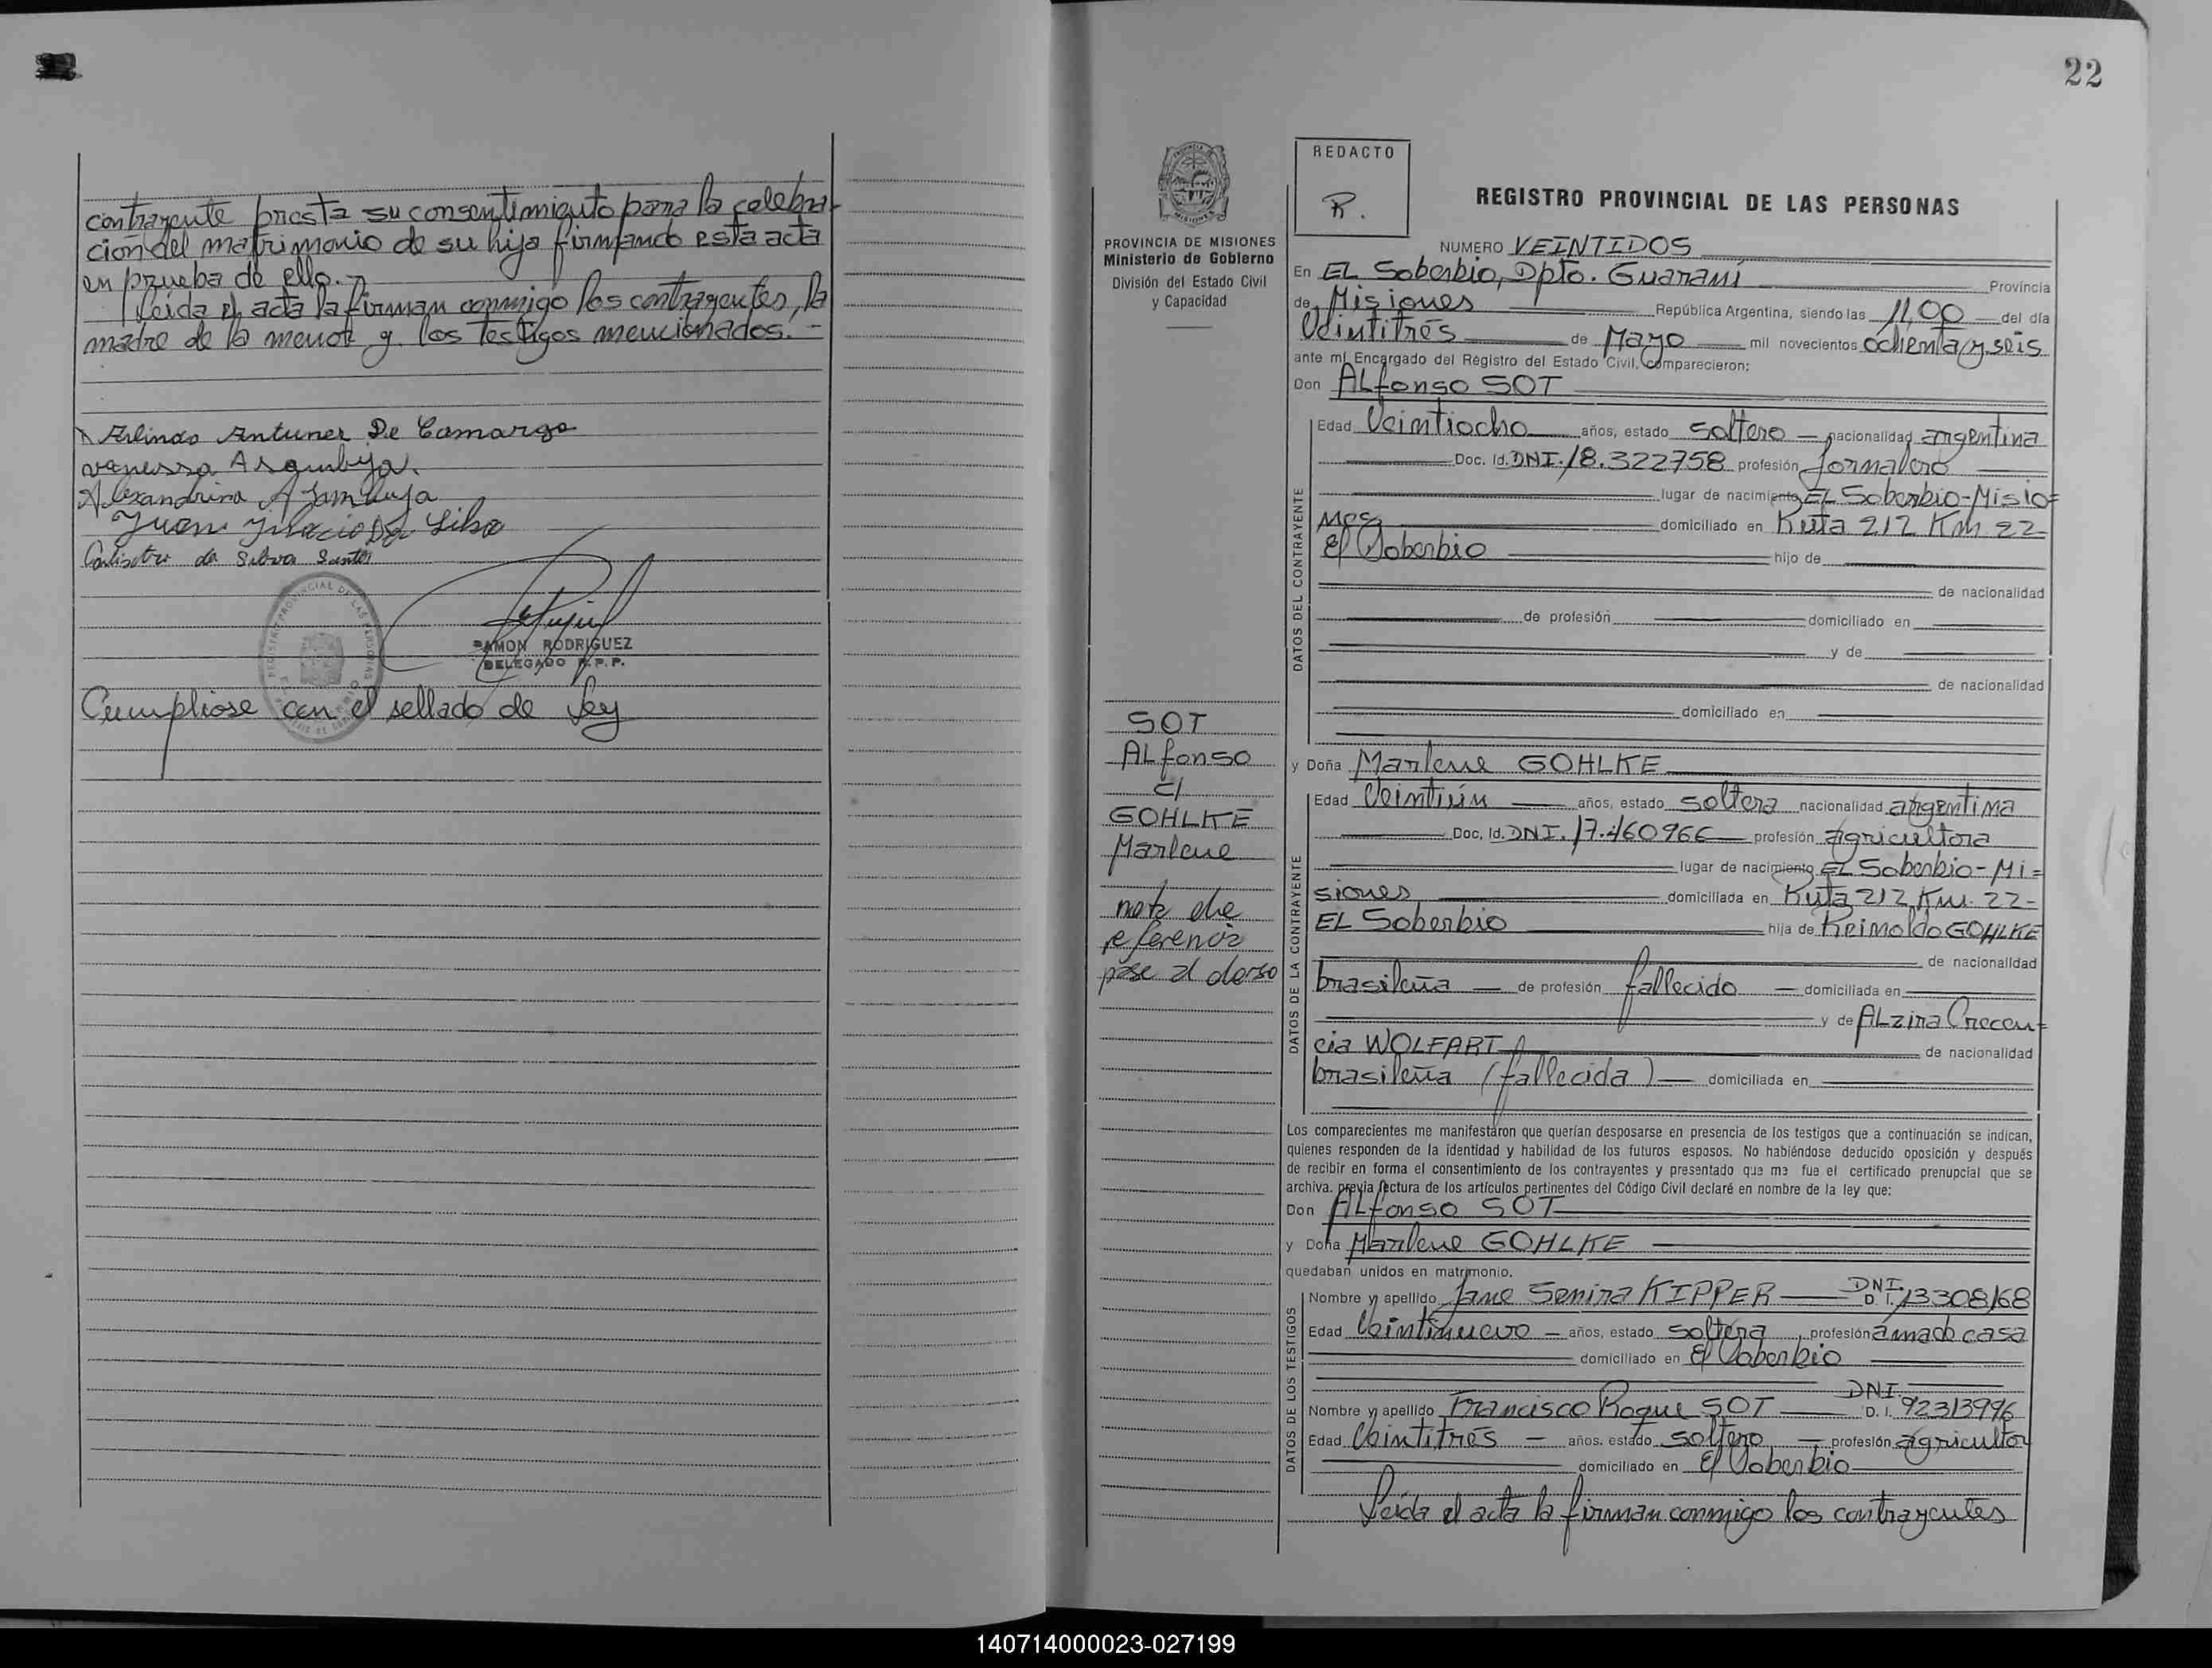 contrayente presta su consentimiento para la celebra-
ción del matrimonio de su hija firmando esta acta
en prueba de ello.-
Leída el acta la firman conmigo los contrayentes, la
madre de la menor y los testigos mencionados.-
Arlindo Antunez De Camargo
vanessa
Alexandrina A
Juan Da Silva
da Silva Santos
RAMON RODRIGUEZ
DELEGADO R.P.P.
Cumpliose con el sellado de Ley
22
REDACTO
R.
REGISTRO PROVINCIAL DE LAS PERSONAS
PROVINCIA DE MISIONES
Ministerio de Gobierno
División del Estado Civil
y Capacidad
NUMERO VEINTIDOS
En EL Soberbio, Dpto. Guaraní Provincia
de Misiones República Argentina, siendo las 11,00 del día
Veintitrés de Mayo mil novecientos ochenta y seis
ante mí Encargado del Registro del Estado Civil, comparecieron:
Don ALfonso SOT
DATOS DEL CONTRAYENTE
Edad Veintiocho años, estado soltero nacionalidad argentina
Doc. Id. DNI. 18.322758 profesión Jornalero
lugar de nacimiento EL Soberbio-Misio=
nes domiciliado en Ruta 212 Km. 22-
El Soberbio hijo de
de nacionalidad
de profesión domiciliado en
y de
de nacionalidad
domiciliado en
SOT
ALfonso
c/
GOHLKE
Marlene
nota de
referencia
pase al dorso
y Doña Marlene GOHLKE
DATOS DE LA CONTRAYENTE
Edad Veintiún años, estado soltera nacionalidad argentina
Doc. Id. DNI. 17.460966 profesión agricultora
lugar de nacimiento EL Soberbio-Mi=
siones domiciliada en Ruta 212 Km. 22-
EL Soberbio hija de Reinoldo GOHLKE
de nacionalidad
brasileña de profesión fallecido domiciliada en
y de ALzira Crecen=
cia WOLFART de nacionalidad
brasileña (fallecida) domiciliada en
Los comparecientes me manifestaron que querían desposarse en presencia de los testigos que a continuación se indican,
quienes responden de la identidad y habilidad de los futuros esposos. No habiéndose deducido oposición y después
de recibir en forma el consentimiento de los contrayentes y presentado que me fue el certificado prenupcial que se
archiva, previa lectura de los artículos pertinentes del Código Civil declaré en nombre de la ley que:
Don ALfonso SOT
y Doña Marlene GOHLKE
quedaban unidos en matrimonio.
DATOS DE LOS TESTIGOS
Nombre y apellido Jane Senira KIPPER DNI. D. I. 13308168
Edad Veintinueve años, estado soltera profesión ama de casa
domiciliado en El Soberbio
Nombre y apellido Francisco Roque SOT DNI. D. I. 92313996
Edad Veintitrés años, estado soltero profesión agricultor
domiciliado en El Soberbio
Leída el acta la firman conmigo los contrayentes
140714000023-027199